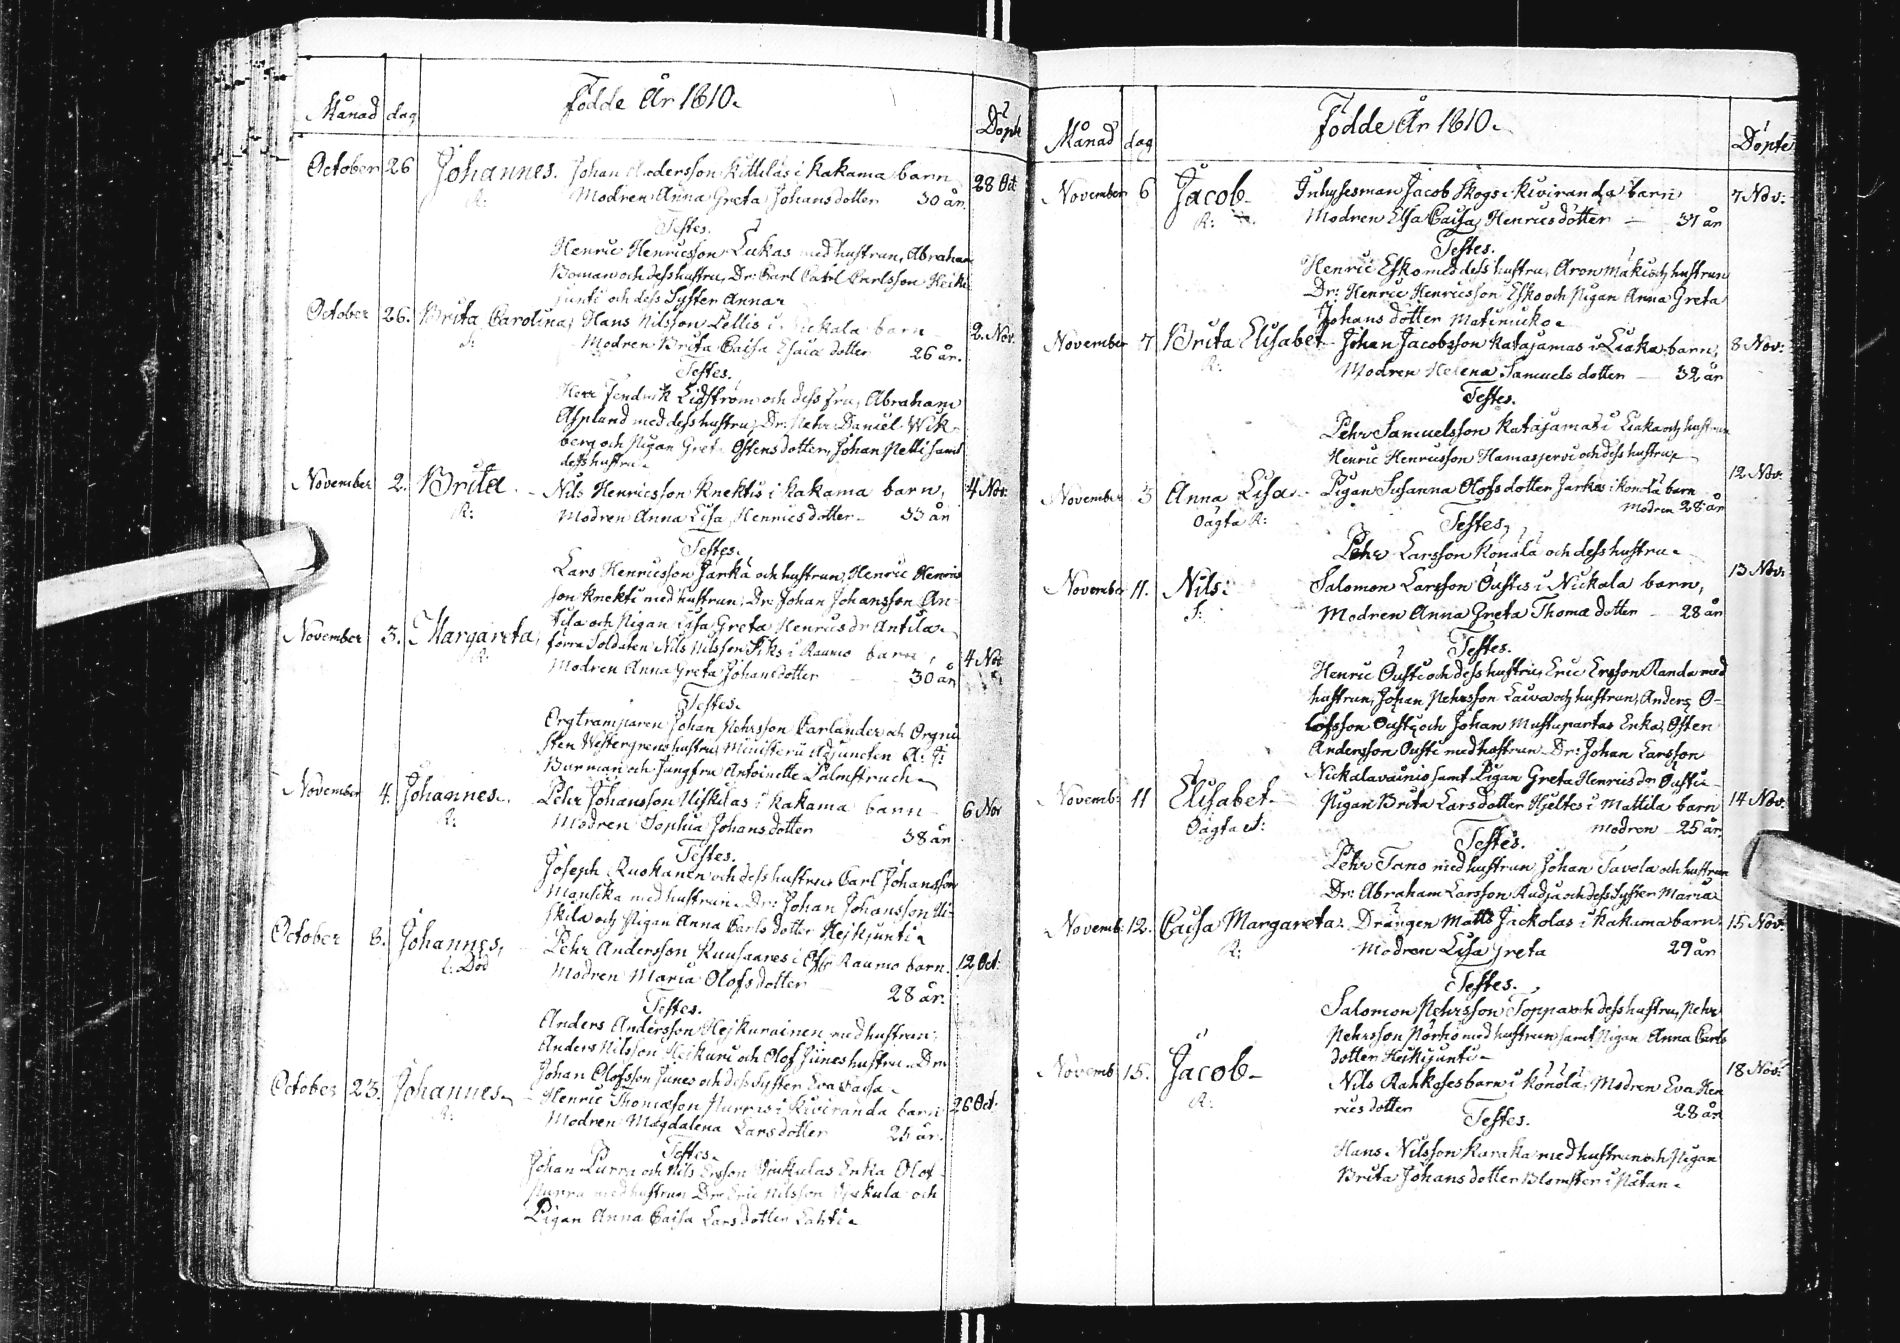 Födde År 1810.
Månad dag Döpte
October 26 Johannes. Johan Andersson Kittiläs i Kakama barn 28 Oct
R: Modren Anna Greta Johans dotter 30 år.
Testes.
Henric Henricsson Lukas med hustrun, Abraham
Boman och dess hustru, Dr: Carl Carl Carlsson Heiki
junti och dess Syster Anna.
October 26. Brita Carolina, Hans Nilsson Lellis i Nickala barn 2. Nov.
Modren Brita Caisa Esaiæ dotter 26 år.
Testes.
Herr Fendrik Lidström och dess fru, Abraham
Asplund med dess hustru, Dr: Pehr Daniel Wik-
berg och Pigan Greta Ostens dotter, Johan Nelli samt
dess hustru.
November 2. Brita. Nils Henricsson Knektis i Kakama barn, 4 Nov:
R: Modren Anna Lisa Henrics dotter. 33 år
Testes.
Lars Henricsson Jarka och hustrun, Henric Henrics
son Knekti med hustrun, Dr: Johan Johansson An-
tila och Pigan Lisa Greta Henrics dr Antila.
November 3. Margareta, förra Soldaten Nils Nilsson Piks i Raumo barn, 4 Nov
R: Modren Anna Greta Johans dotter 30 år
Testes.
Orgtramparen Johan Pehrsson Carlander och Orgni
sten Westergrens hustru, Ministerii Adjuncten A: F:
Burman och Jungfru Antoinette Palmstruch
November 4. Johannes. Pehr Johansson Niskilas i Kakama barn 6 Nov
R: Modren Sophia Johans dotter 38 år
Testes.
Joseph Ruokanen och dess hustru, Carl Johansson
Mansika med hustrun. Dr: Johan Johansson Ni-
skila och Pigan Anna Carls dotter Hejkjunti.
October 8. Johannes, Pehr Andersson Kuusaares i Öfr Raumo barn. 12 Oct:
t: Död Modren Maria Olofs dotter 28 år.
Testes.
Anders Andersson Hejkurainen med hustrun,
Anders Nilsson Heikuri och Olof Junes hustru. Dr:
Johan Olofsson Junes och dess Syster Eva Caisa.
October 23. Johannes. Henric Thomæson Purras i Kiviranda barn 26 Oct.
R: Modren Magdalena Lars dotter 25 år.
Testes.
Johan Purra och Nils Ersson Enka Olof
Purra med hustrun Dr: Eric Nilsson och
Pigan Anna Caisa Lars dotter Lahti.
Födde År 1810.
Månad dag Döpte
November 6 Jacob Inhysesman Jacob Skogs i Kiviranda barn 7 Nov:
R: Modren Elsa Caisa Henrics dotter 37 år
Testes.
Henric Esko med dess hustru, Aron Mäki och hustrun
Dr: Henric Henricsson Esko och Pigan Anna Greta
Johans dotter Matinuiko.
November 7 Brita Elisabet Johan Jacobsson Katajamas i Liaka barn, 8 Nov:
R: Modren Helena Samuels dotter 32 år
Testes.
Pehr Samuelsson Katajama i Liaka och hustrun
Henric Henricsson Hamasjervi och dess hustru.
November 3 Anna Lisa. Pigan Susanna Olofs dotter Jarkas i Konola barn 12 Nov:
Oägta R: Modren 28 år
Testes,
Pehr Larsson Konola och dess hustru.
November 11. Nils: Salomon Larsson Oustis i Nickala barn, 13 Nov:
Modren Anna Greta Thomæ dotter 28 år
Testes.
Henric Ousti och dess hustru, Eric Ersson Randa med
hustrun, Johan Pehrsson Laiva och hustrun, Anders O-
lofsson Ousti och Johan Mustaparta Enka, Osten
Andersson Ousti med hustrun. Dr: Johan Larsson
Nickalavainio samt Pigan Greta Henrics dr Ousti.
Novemb: 11 Elisabet. Pigan Brita Lars dotter Hjeltes i Mattila barn 14 Nov:
Oägta Modren 25 år.
Testes.
Pehr Tano med hustrun, Johan Tavela och hustrun
Dr: Abraham Larsson Kudja och dess Syster Maria.
Novemb: 12. Caisa Margareta. Drängen Matts Jackolas i Kakama barn. 15 Nov:
R: Modren Lisa Greta 29 år
Testes.
Salomon Pehrsson Toppa och dess hustru, Pehr
Pehrsson Pörhö med hustrun samt Pigan Anna Carls
dotter Heikijunti.
Novemb: 15. Jacob. Nils Rahkoses barn i Konola, Modren Eva Hen 18 Nov:
R: rics dotter 28 år
Testes.
Hans Nilsson Kuraka med hustrun och Pigan
Brita Johans dotter Blomster i Nätan.